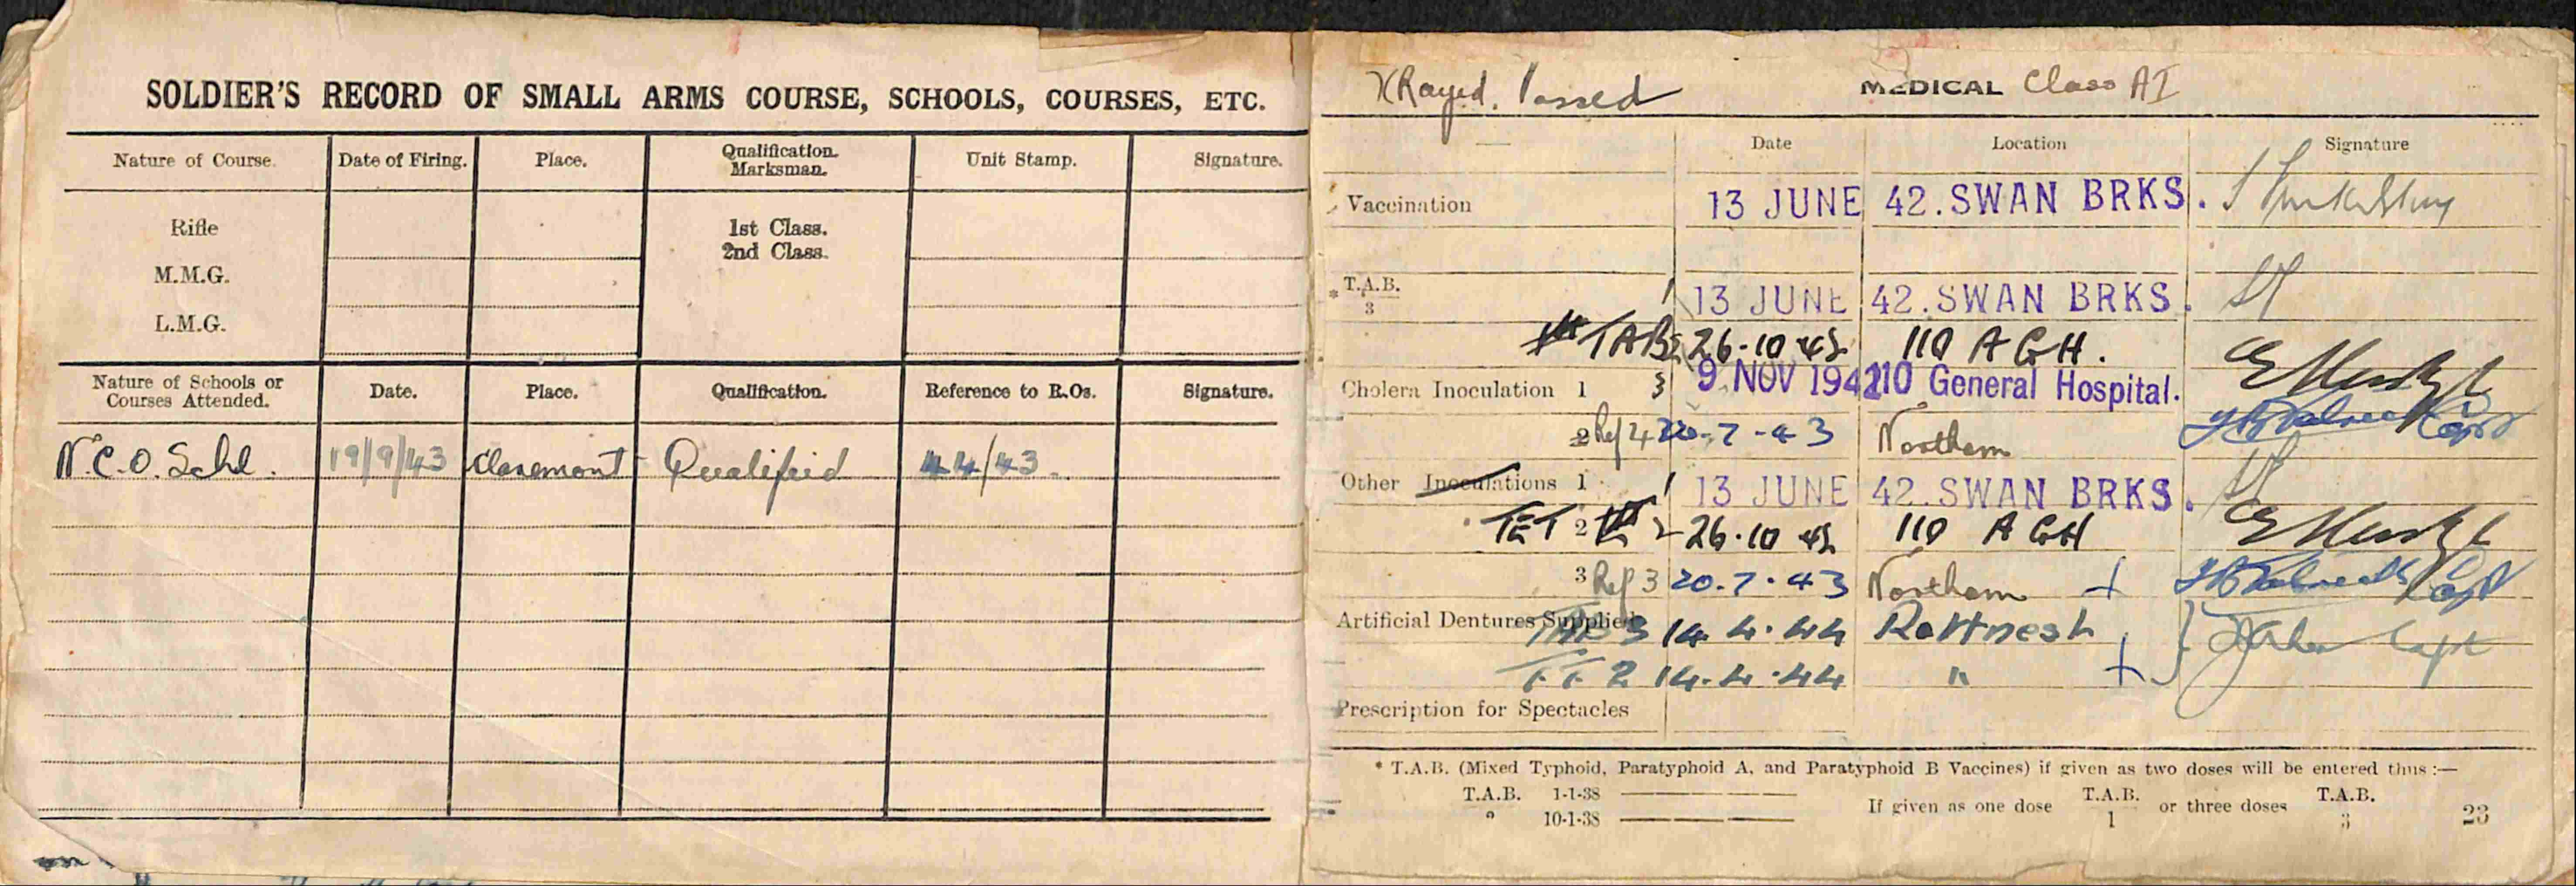 SOLDIER'S RECORD OF SMALL ARMS COURSE, SCHOOLS, COURSES, ETC.
Nature of Course. Date of Firing. Place. Qualification. Marksman. Unit Stamp. Signature.
Rifle 1st Class.
2nd Class.
M.M.G.
L.M.G.
Nature of Schools or Courses Attended. Date. Place. Qualification. Reference to R.Os. Signature.
N.C.O. Schl. 19/9/43 Claremont Qualifeid 44/43.
XRayed. Passed MEDICAL Class A1
Date Location Signature
Vaccination 13 JUNE 42. SWAN BRKS.
* T.A.B. 3 1 13 JUNE 42. SWAN BRKS.
TAB 2 26.10.42 110 A G H.
Cholera Inoculation 1 3 9 NOV 1942 110 General Hospital.
2 Rep 4 20-7-43 Northam Capt
Other Inoculations 1 1 13 JUNE 42. SWAN BRKS.
TET 2 2 26.10.42 110 A G H
3 Rep 3 20.7.43 Northam Capt
Artificial Dentures Supplied TAB 3 14.4.44 Rottnesh Capt
T.T. 2 14.4.44 "
Prescription for Spectacles
* T.A.B. (Mixed Typhoid, Paratyphoid A, and Paratyphoid B Vaccines) if given as two doses will be entered thus :—
T.A.B. 1-1-38
" 10-1-38
If given as one dose T.A.B. 1 or three doses T.A.B. 3
23